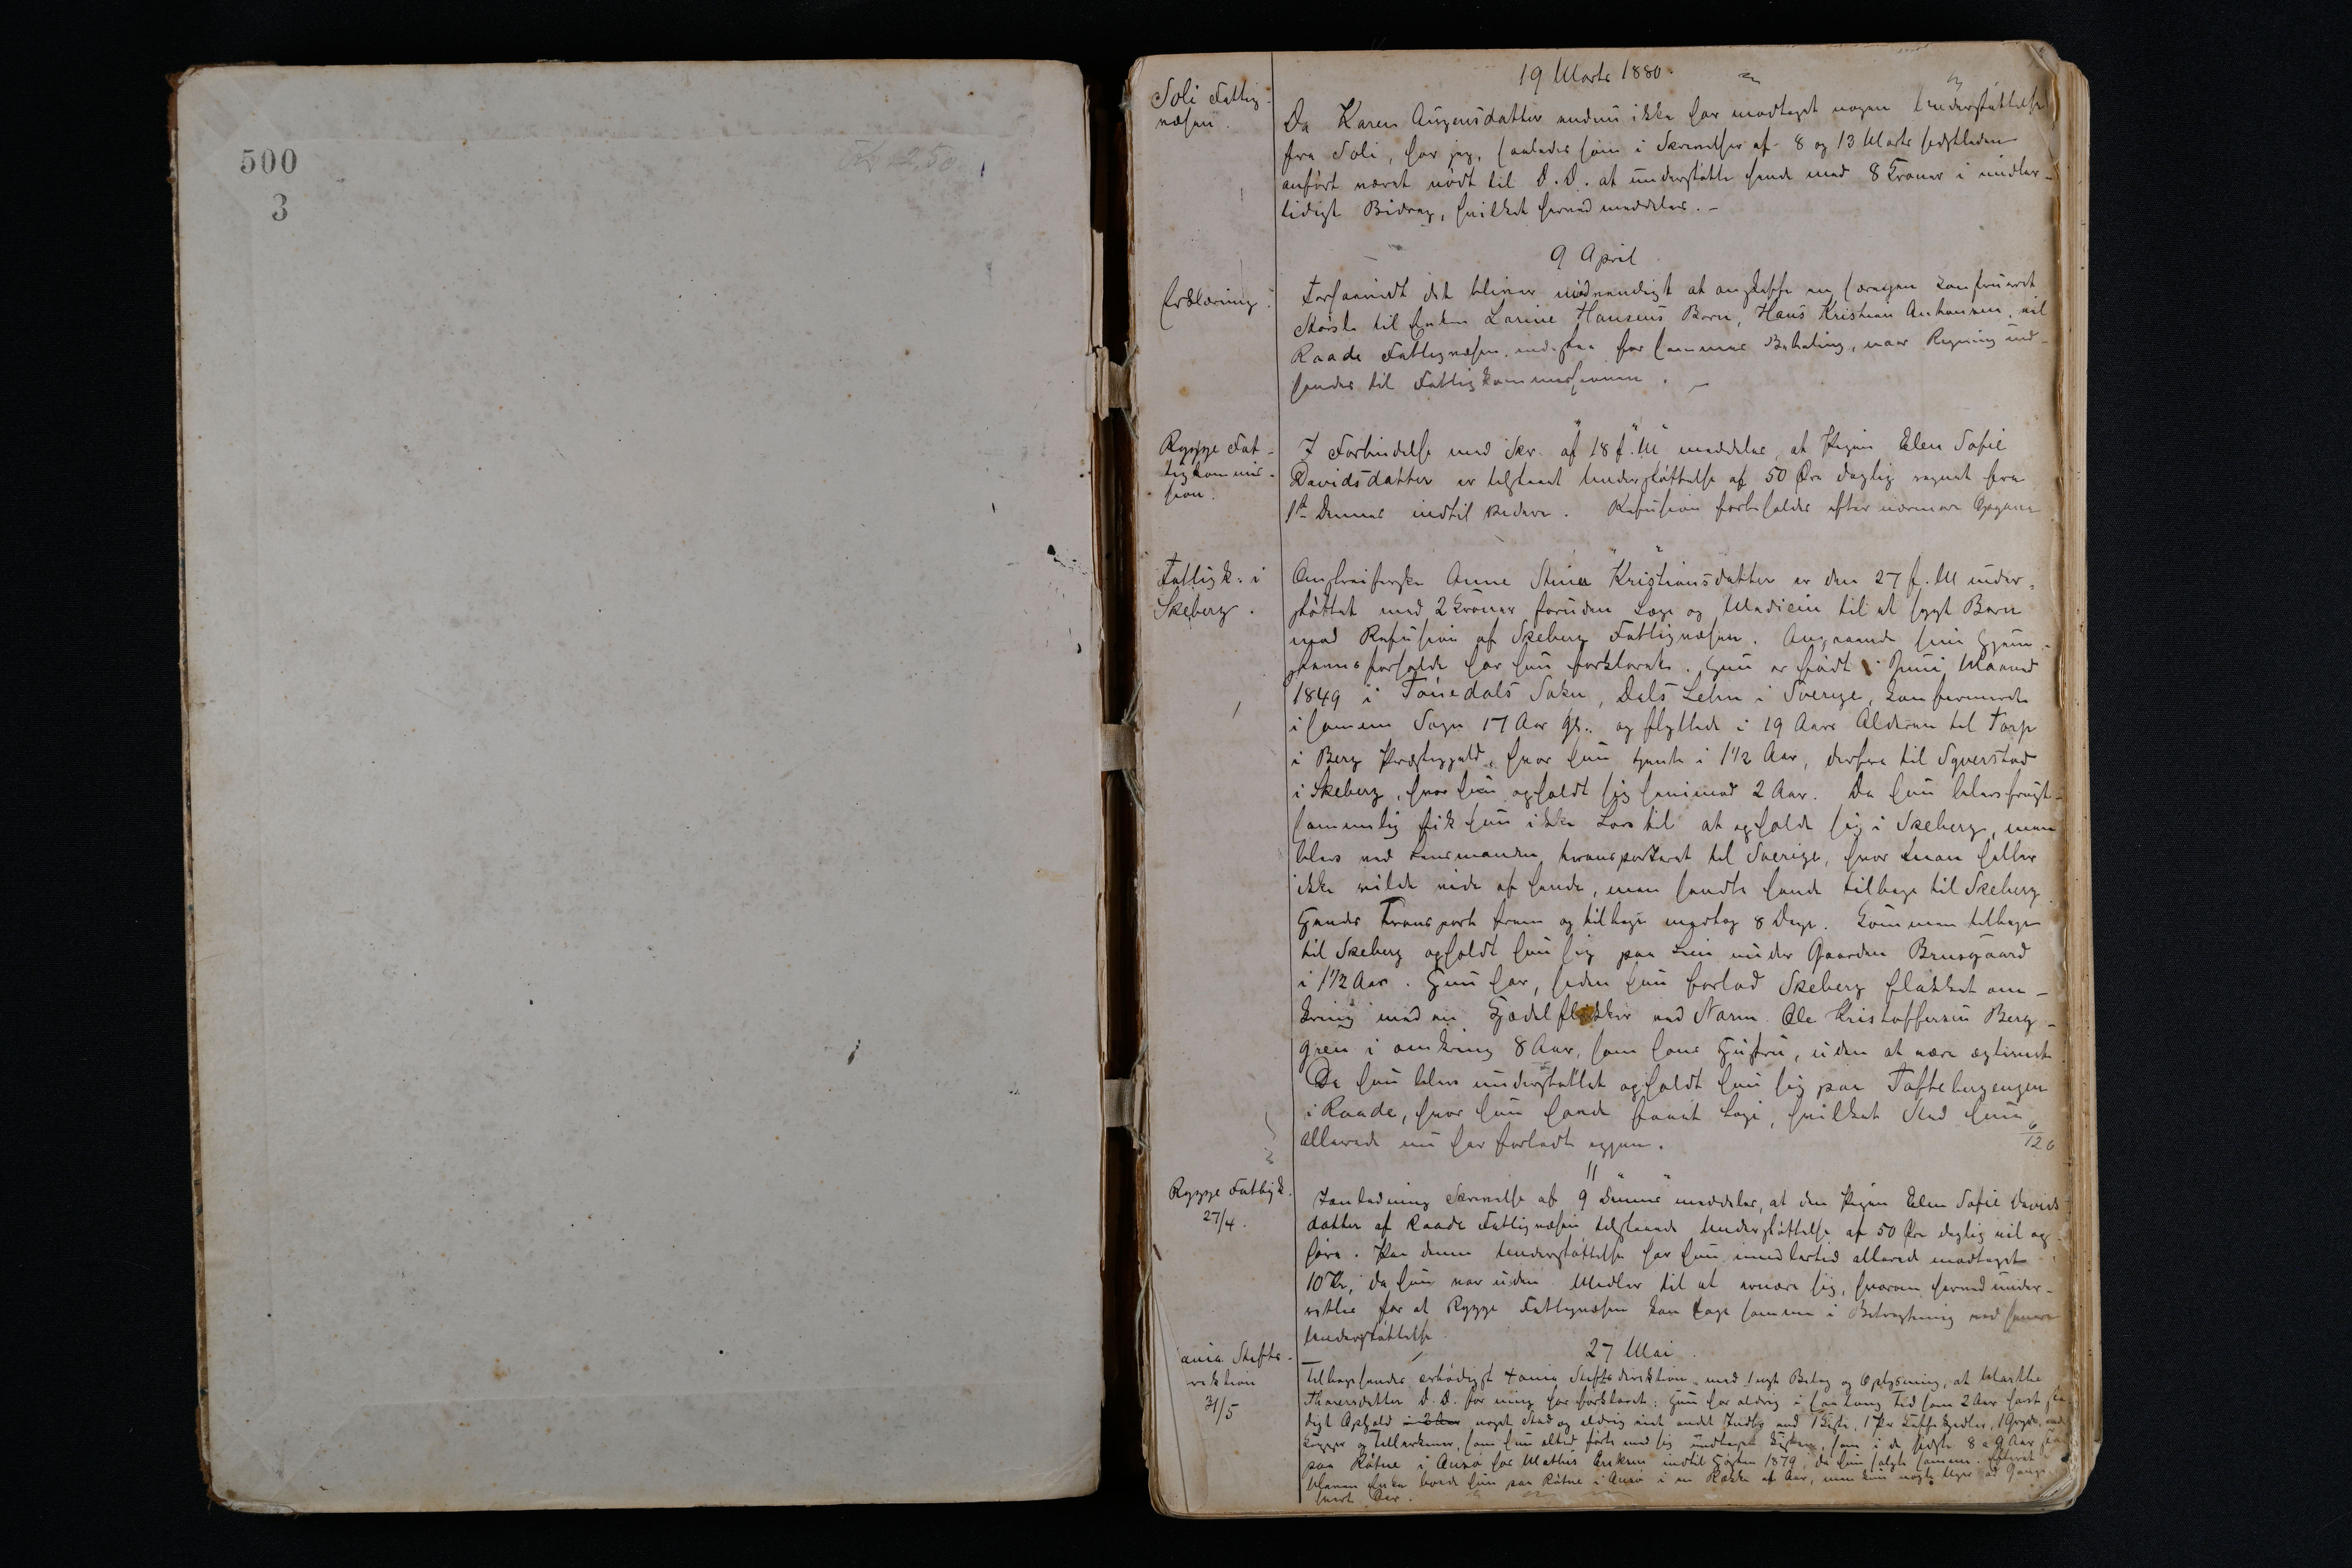 500
3
Kr 2,50
19 Marts 1880.
Soli Fattig-
væsen.
Da Karen Augensdatter endnu ikke har modtaget nogen Understøttelse
fra Soli, har jeg, saaledes som i Skrivelser af 8 og 13 Marts sidstleden
anført været nødt til D. D. at understøtte hende med 8 Kroner i midler-
tidigt Bidrag, hvilket herved meddeles. -
9 April
Erklæring.
Forsaavidt det bliver nødvendigt at anskaffe en særegen konstrueret
Støvle til Enken Larine Hansens Barn, Hans Kristian Anhansen, vil
Raade Fattigvæsen indestaa for sammes Betaling, naar Regning ind-
sendes til Fattigkommissionen. -
Rygge Fat-
tigkommis-
sion.
I Forbindelse med Skr. af 18 f. M meddeles, at Pigen Elen Sofie
Davidsdatter er tilstaaet Understøttelse af 50 Øre daglig regnet fra
1ste Dennes indtil videre. Refusion forbeholdes efter nærmere Opgave
Fattigk. i
Skeberg.
Omstreifersken Anne Stina Kristiansdatter er den 27 f. M under-
støttet med 2 Kroner foruden Læge og Medicin til et sygt Barn
mod Refusion af Skeberg Fattigvæsen. Angaaende sin Hjem-
stavnsforholde har hun forklaret. Hun er født i Juni Maaned
1849 i Tøsedals Sokn, Dals Lehn i Sverige, konfirmeret
i samme Sogn 17 Aar gl. og flyttede i 19 Aars Alderen til Torp
i Berg Præstegjeld, hvor hun tjente i 1 1/2 Aar, derfra til Syverstad
i Skeberg, hvor hun opholdt sig henimod 2 Aar. Da hun blev frugt-
sommelig fik hun ikke Lov til at opholde sig i Skeberg, men
blev ved Lensmanden transporteret til Sverige, hvor man heller
ikke vilde vide af hende, men sendte hende tilbage til Skeberg
Hendes Transport frem og tilbage medtog 8 Dage. Kommen tilbage
til Skeberg opholdt hun sig paa Lien under Gaarden Brunsgaard
i 1 1/2 Aar. Hun har, siden hun forlod Skeberg flakket om-
kring med en Hjædelflikker ved Navn Ole Kristoffersen Berg-
gren i omkring 8 Aar, som hans Hustru, uden at være egteviet
Da hun blev understøttet opholdt hun sig paa Toftebergengen
i Raade, hvor hun havde faaet Logi, hvilket Sted hun
allerede nu har forladt igjen.
Rygge Fattigk.
27/4.
I Anledning Skrivelse af 9 dennes meddeles, at den Pigen Elen Sofie Davids
datter af Raade Fattigvæsen tilstaaede Understøttelse af 50 Øre daglig vil op
høre. Paa denne Understøttelse har hun imidlertid allerede modtaget
10 Kr, da hun var uden Midler til at ernære sig, hvorom herved under-
rettes for at Rygge Fattigvæsen kan tage samme i Betragtning ved senere
Understøttelse.
27 Mai.
ania Stifts-
rektion
31/5
Tilbagesendes ærbødigst Xania Stiftsdirektion med 1 nyt Bilag og Oplysning, at Marthe
Thoresdatter D. D. for mig har forklaret: Hun har aldrig i saa lang Tid som 2 Aar havt sta
digt Ophold noget Sted og aldrig eiet andet Indbo end 1 Kiste, 1 Par Kaffekjedler, 1 Gryde,
Kopper og Tallerkener, som hun altid førte med sig undtagen Kisten, som i de sidste 8 a 9 Aar
paa Røtne i Ansø hos Mathis Eriksen indtil Høsten 1879, da hun solgte samme.
boede hun paa Røtne i Ansø i en Række af Aar, men kun nogle Uger ad Gangen
hvert Aar.